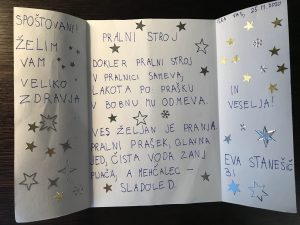 SPOŠTOVANI!
ŽELIM
VAM
VELIKO
ZDRAVJA
PRALNI STROJ
DOKLER PRALNI STROJ
V PRALNICI SAMEVA,
LAKOTA PO PRAŠKU
V BOBNU MU ODMEVA.
VES ŽELJAN JE PRANJA.
PRALNI PRAŠEK, GLAVNA
JED, ČISTA VODA ZANJ
PIJAČA, A MEHČALEC –
SLADOLED.
25. 11. 2020
IN
VESELJA!
EVA STANEŠIČ